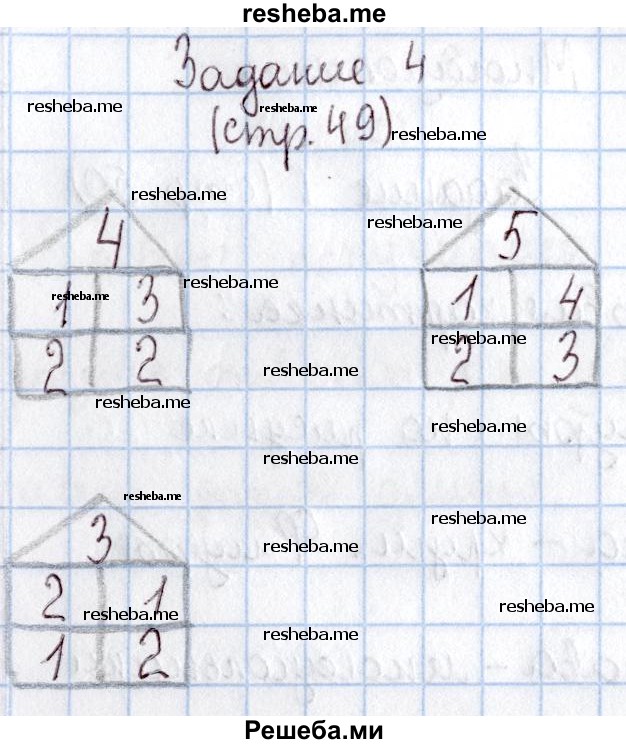 resheba.me
Задание 4
resheba.me
resheba.me
(стр. 49)
resheba.me
resheba.me
resheba.me
4
5
resheba.me
resheba.me
1 3
1 4
resheba.me
2 2
2 3
resheba.me
resheba.me
resheba.me
resheba.me
resheba.me
resheba.me
3
resheba.me
2 1
resheba.me
resheba.me
resheba.me
1 2
Решеба.ми